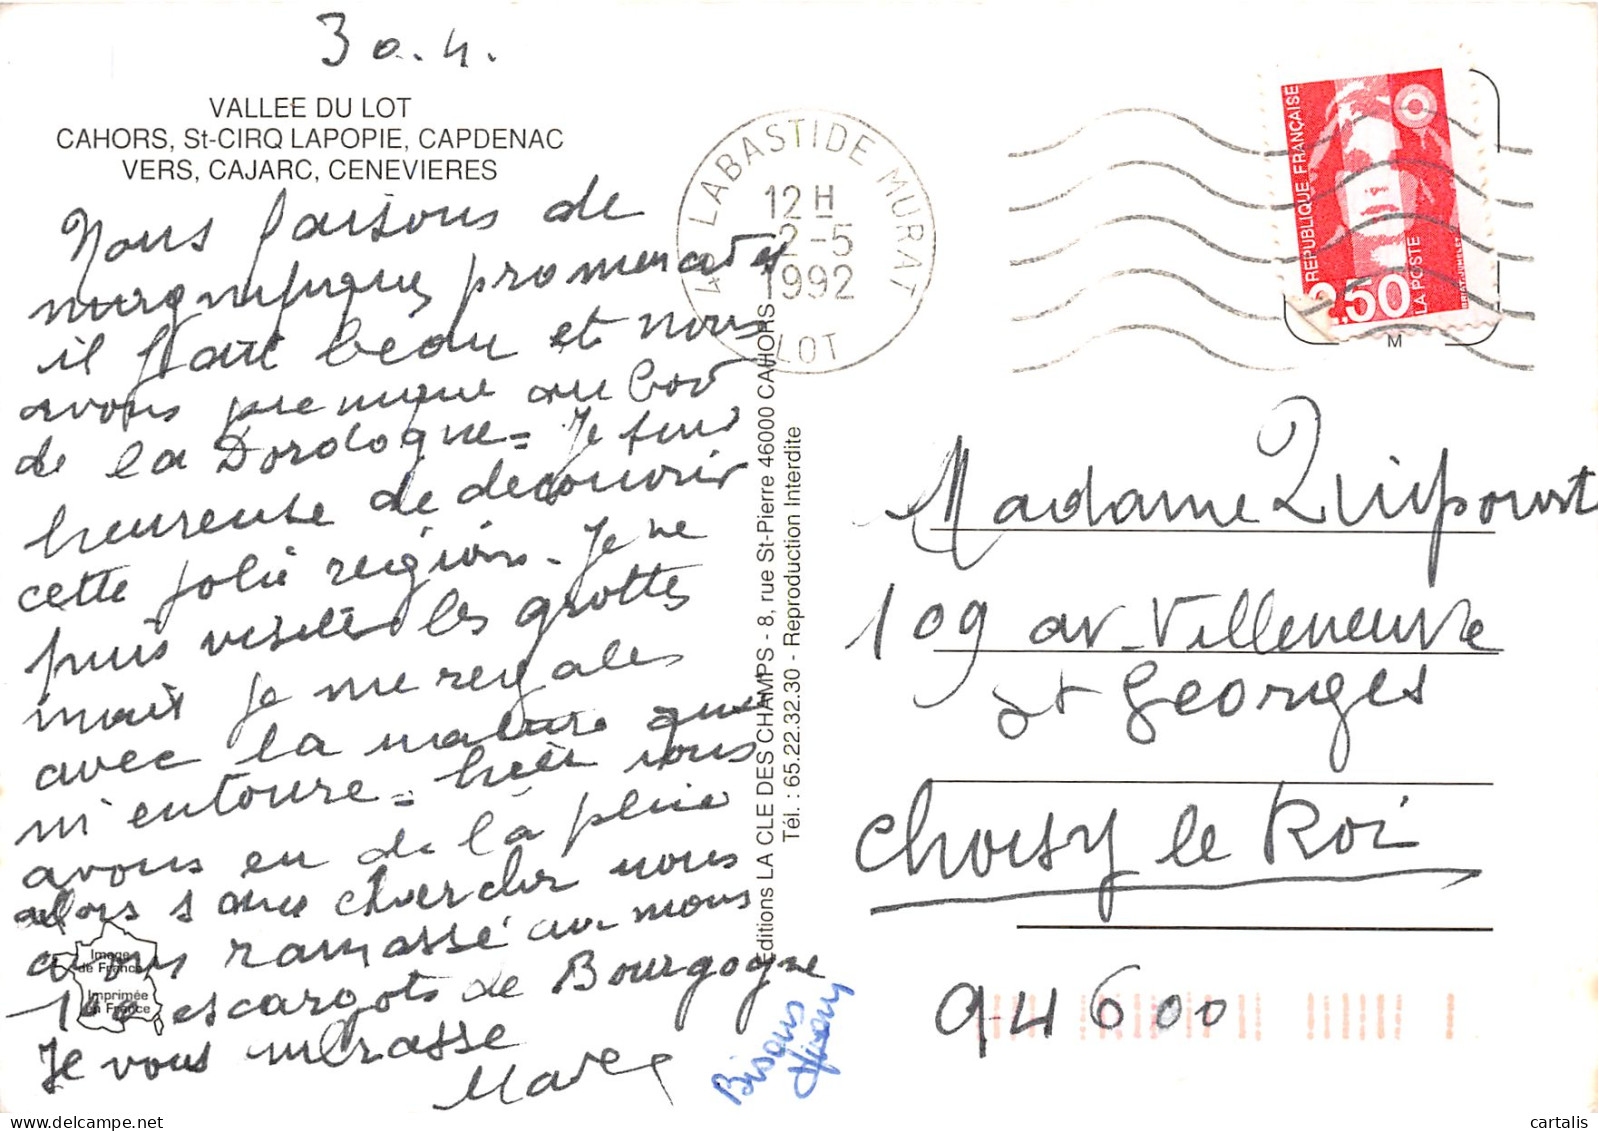 30.4.
VALLEE DU LOT
CAHORS, St-CIRQ LAPOPIE, CAPDENAC
VERS, CAJARC, CENEVIERES
Nous faisons de
magnifiques promenades
il fait beau et nous
avons au bord
de la Dordogne = Je suis
heureuse de decouvrir
cette jolie région - Je ne
puis visiter les grottes
mais je me regales
avec la nature qui
m'entoure = hier nous
avons eu de la pluie
alors sans chercher nous
avons ramassé au moins
100 escargots de Bourgogne
Je vous embrasse
Bisous
Image
de France
Imprimée
en France
Editions LA CLE DES CHAMPS - 8, rue St-Pierre 46000 CAHORS
Tél. : 65.22.32.30 - Reproduction Interdite
LABASTIDE MURAT
12 H
2-5
1992
LOT
REPUBLIQUE FRANÇAISE
2,50
LA POSTE
M
Madame
109 av. Villeneuve
St Georges
Choisy le Roi
94600
cartalis